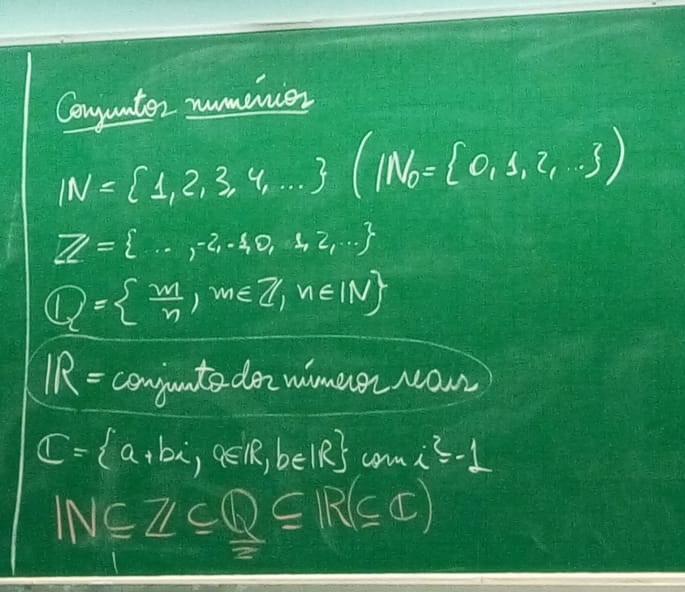 Conjuntos numéricos
ℕ = {1, 2, 3, 4, ...} (ℕ₀ = {0, 1, 2, ...})
ℤ = {..., -2, -1, 0, 1, 2, ...}
ℚ = {m/n, m ∈ ℤ, n ∈ ℕ}
ℝ = conjunto dos números reais
ℂ = {a + bi, a ∈ ℝ, b ∈ ℝ} com i² = -1
ℕ ⊆ ℤ ⊆ ℚ ⊆ ℝ (⊆ ℂ)